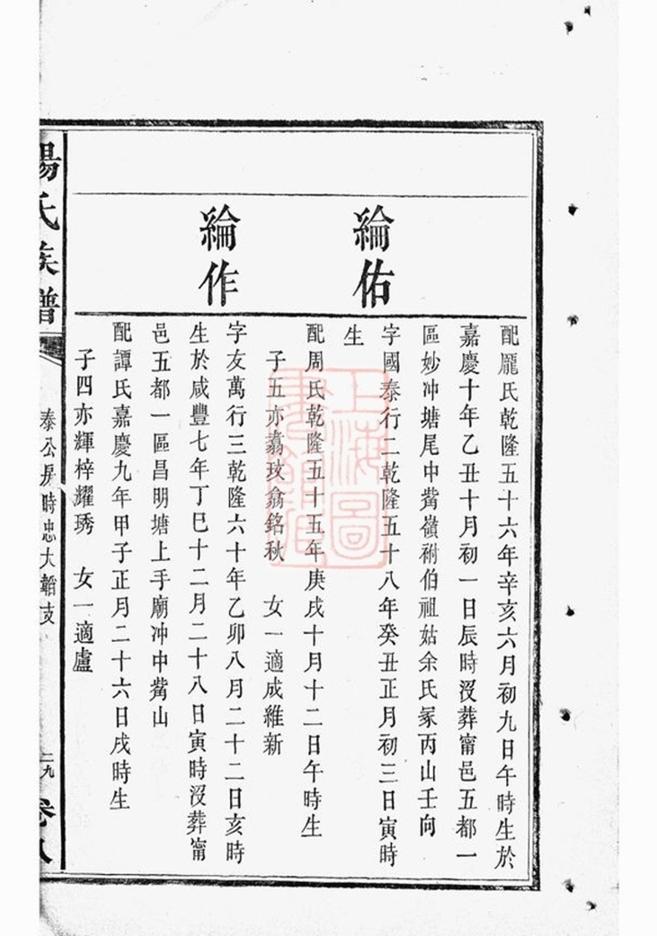 配龎氏乾隆五十六年辛亥六月初九日午時生於
嘉慶十年乙丑十月初一日辰時沒葬甯邑五都一
區妙冲塘尾中觜嶺祔伯祖姑余氏冢丙山壬向
綸佑
字國泰行二乾隆五十八年癸丑正月初三日寅時
生
配周氏乾隆五十五年庚戌十月十二日午時生
子五亦翥玟翕銘秋 女一適成維新
綸作
字友萬行三乾隆六十年乙卯八月二十二日亥時
生於咸豐七年丁巳十二月二十八日寅時沒葬甯
邑五都一區昌明塘上手廟冲中觜山
配譚氏嘉慶九年甲子正月二十六日戌時生
子四亦輝梓耀琇 女一適盧
氏族譜
泰公房時忠大韜支
二九
卷八
上海圖書館藏